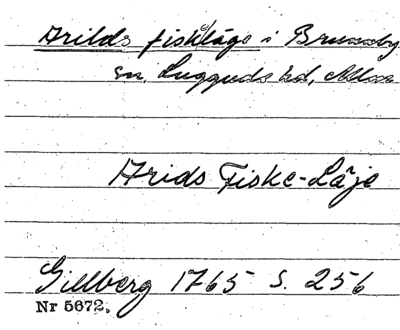 Arilds fiskläge i Brunnby
sn, Luggude hd, Mlm
Arids Fiske-Läje
Gillberg 1765 S. 256
Nr 5672.